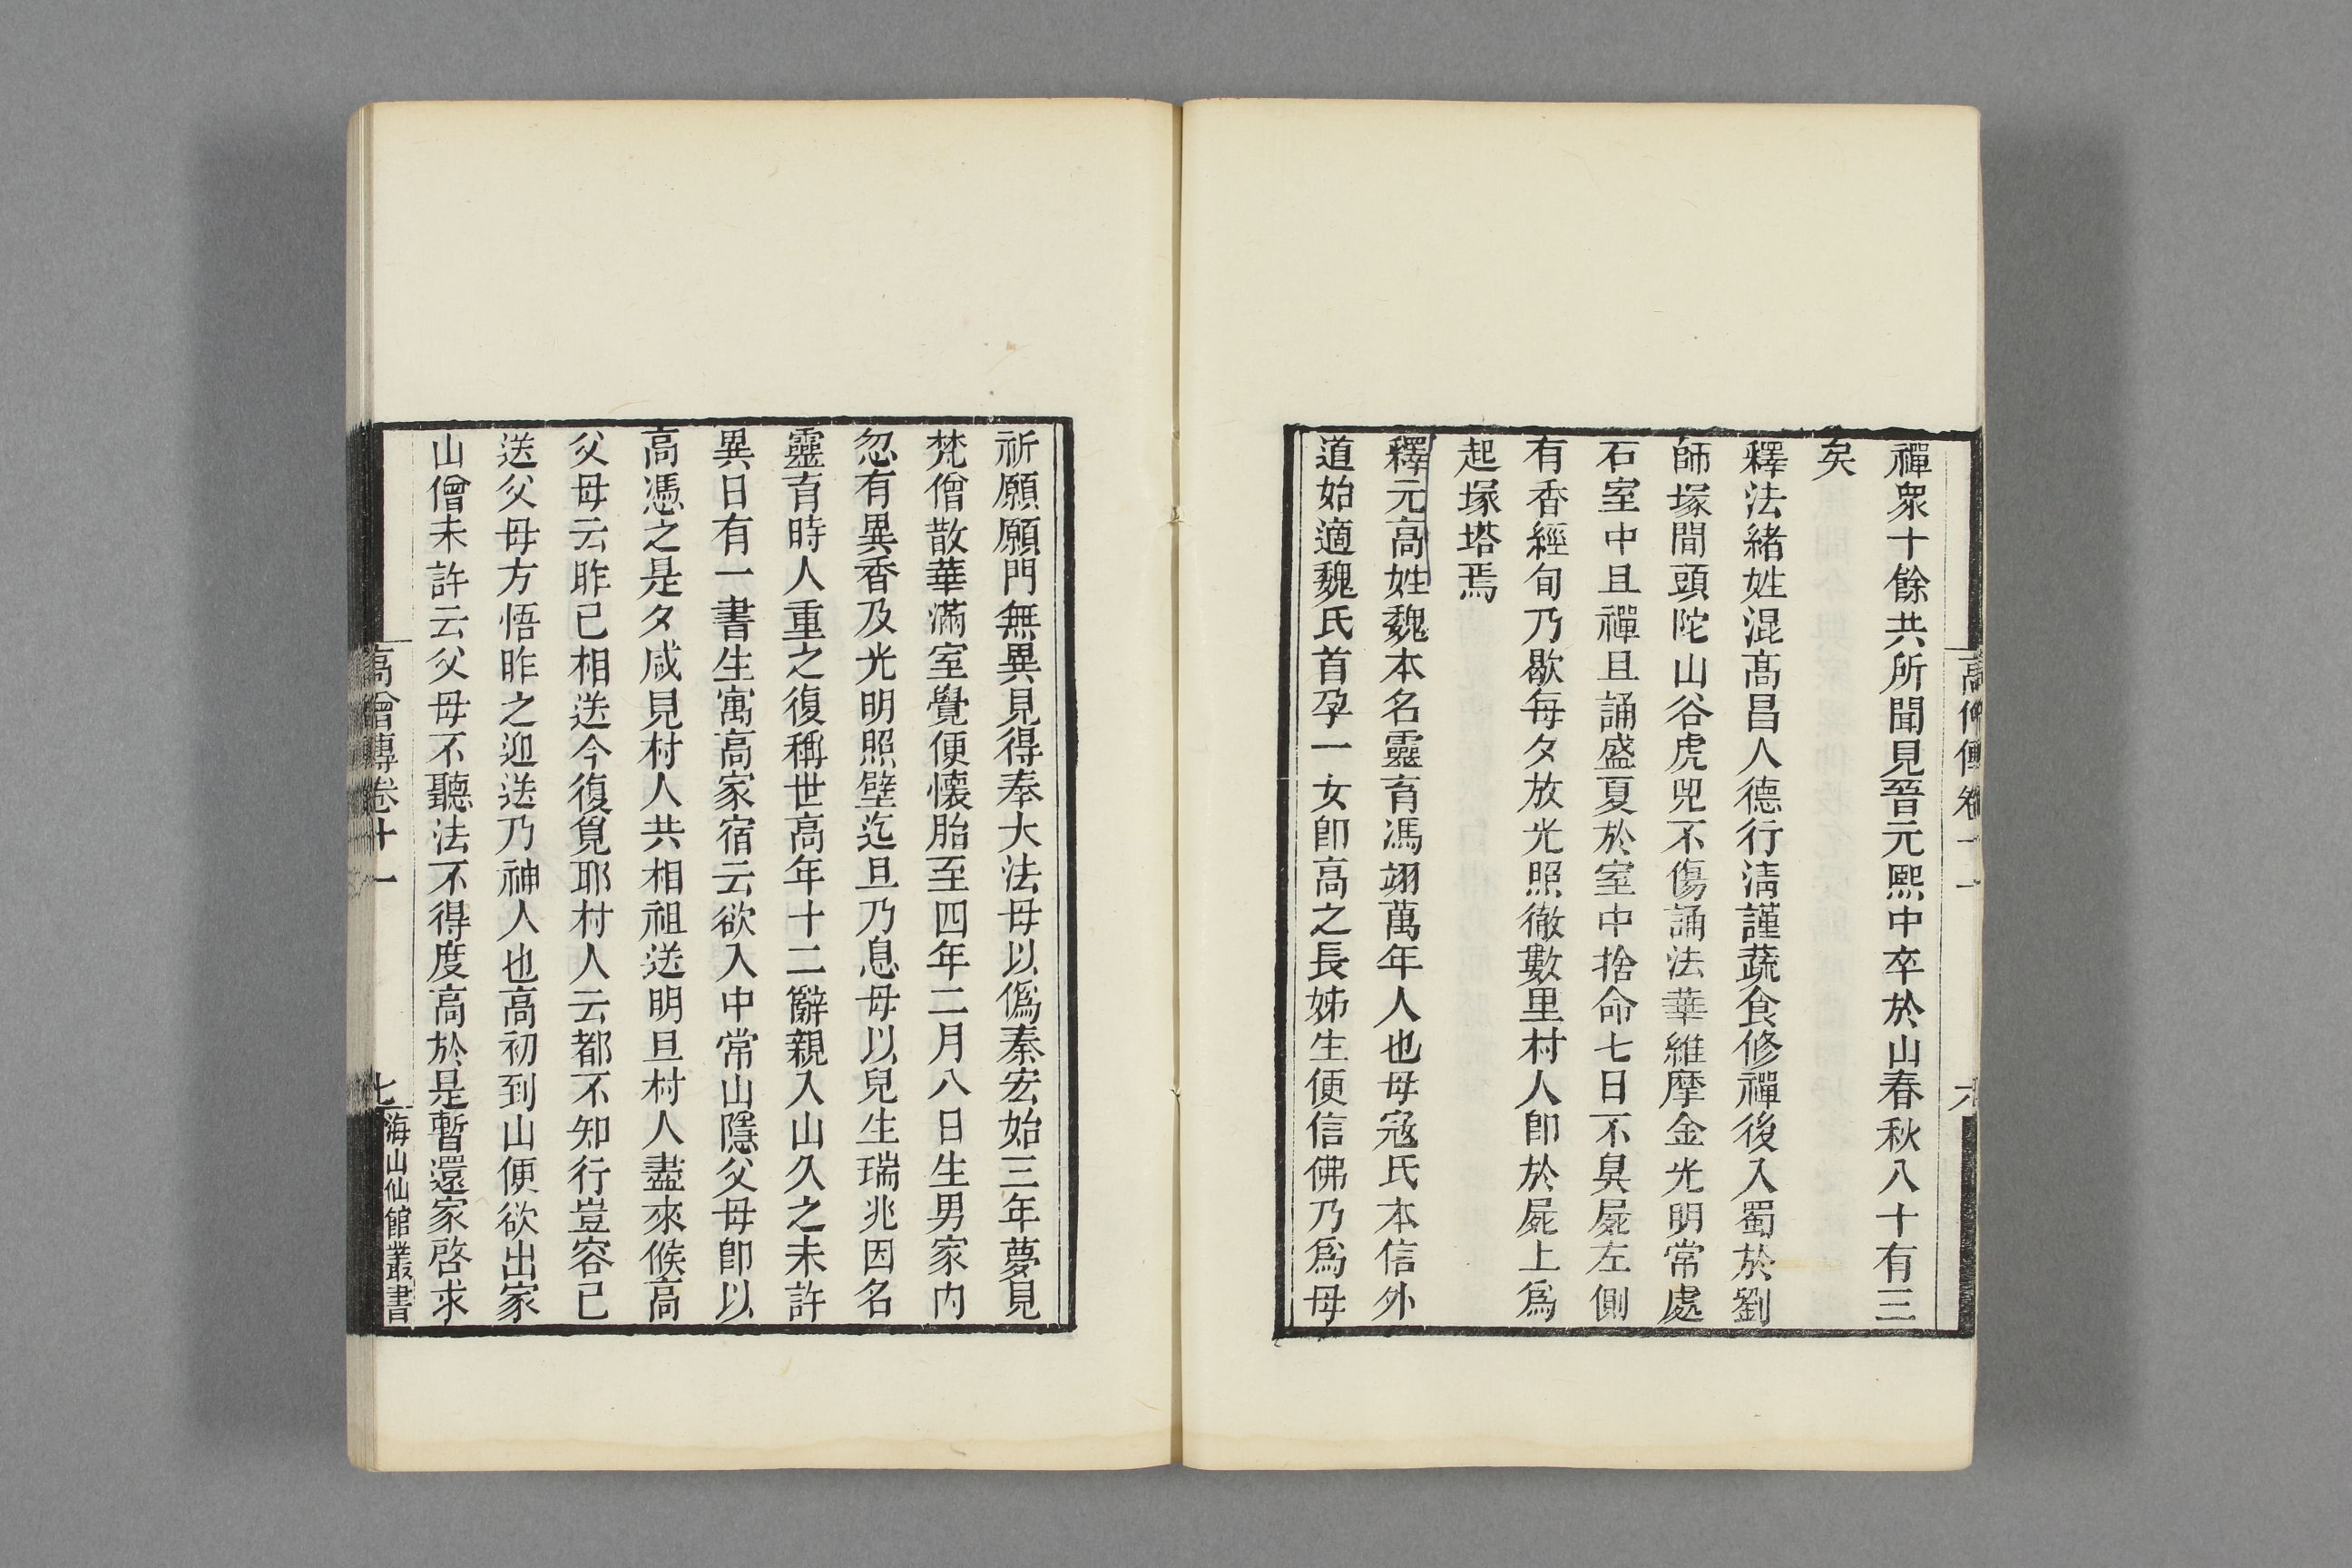 禪衆十餘共所聞見晉元熙中卒於山春秋八十有三
矣
釋法緒姓混高昌人德行淸謹蔬食修禪後入蜀於劉
師塚間頭陀山谷虎兕不傷誦法華維摩金光明常處
石室中且禪且誦盛夏於室中捨命七日不臭屍左側
有香經旬乃歇每夕放光照徹數里村人卽於屍上爲
起塚塔焉
釋元高姓魏本名靈育馮翊萬年人也母寇氏本信外
道始適魏氏首孕一女卽高之長姊生便信佛乃爲母
祈願願門無異見得奉大法母以僞秦宏始三年夢見
梵僧散華滿室覺便懷胎至四年二月八日生男家内
忽有異香及光明照壁迄旦乃息母以兒生瑞兆因名
靈育時人重之復稱世高年十二辭親入山久之未許
異日有一書生寓高家宿云欲入中常山隱父母卽以
高憑之是夕咸見村人共相祖送明旦村人盡來候高
父母云昨已相送今復覓耶村人云都不知行豈容已
送父母方悟昨之迎送乃神人也高初到山便欲出家
山僧未許云父母不聽法不得度高於是暫還家啓求
高僧傳卷十一
七
海山仙館叢書